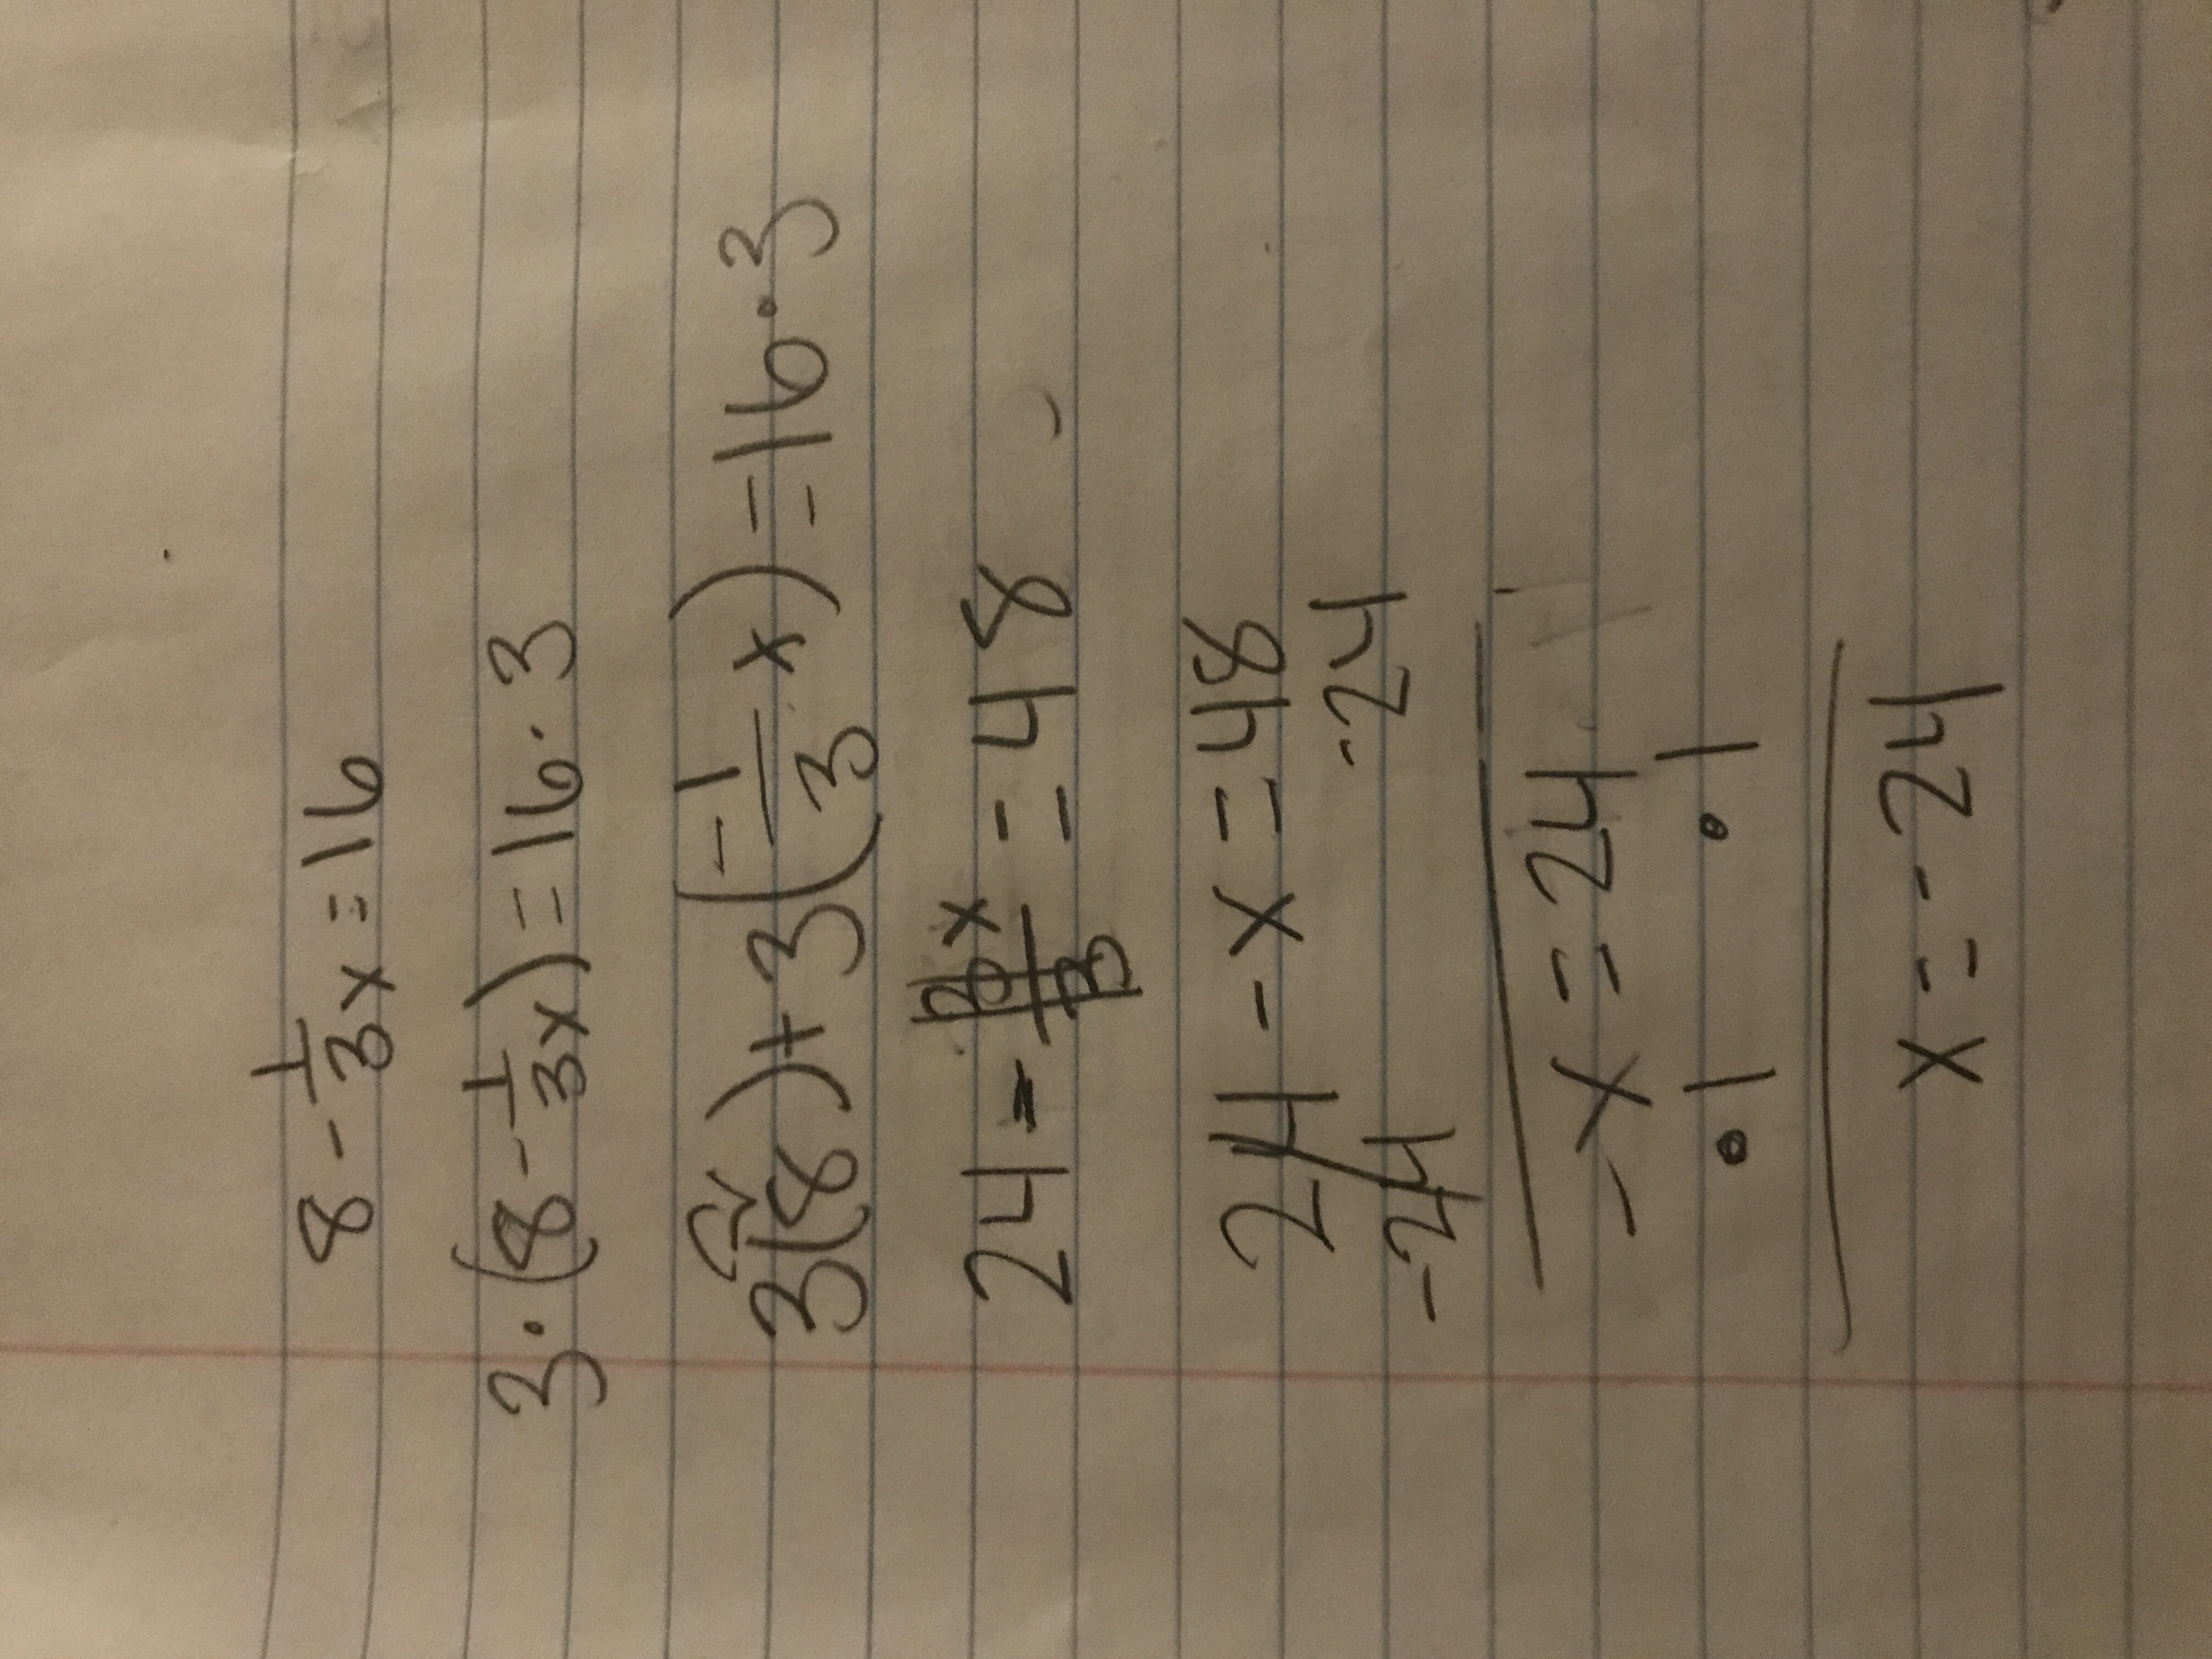 8 - 1/3 x = 16
3 · (8 - 1/3 x) = 16 · 3
3(8) + 3(-1/3 x) = 16 · 3
24 - 3x/3 = 48
24 - x = 48
-24 -24
- x = 24
· 1 · 1
x = - 24